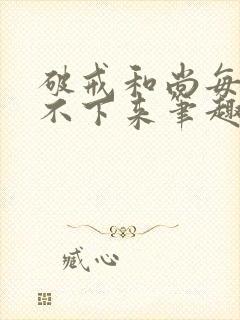 破戒和尚每
不下来笔趣
臧心